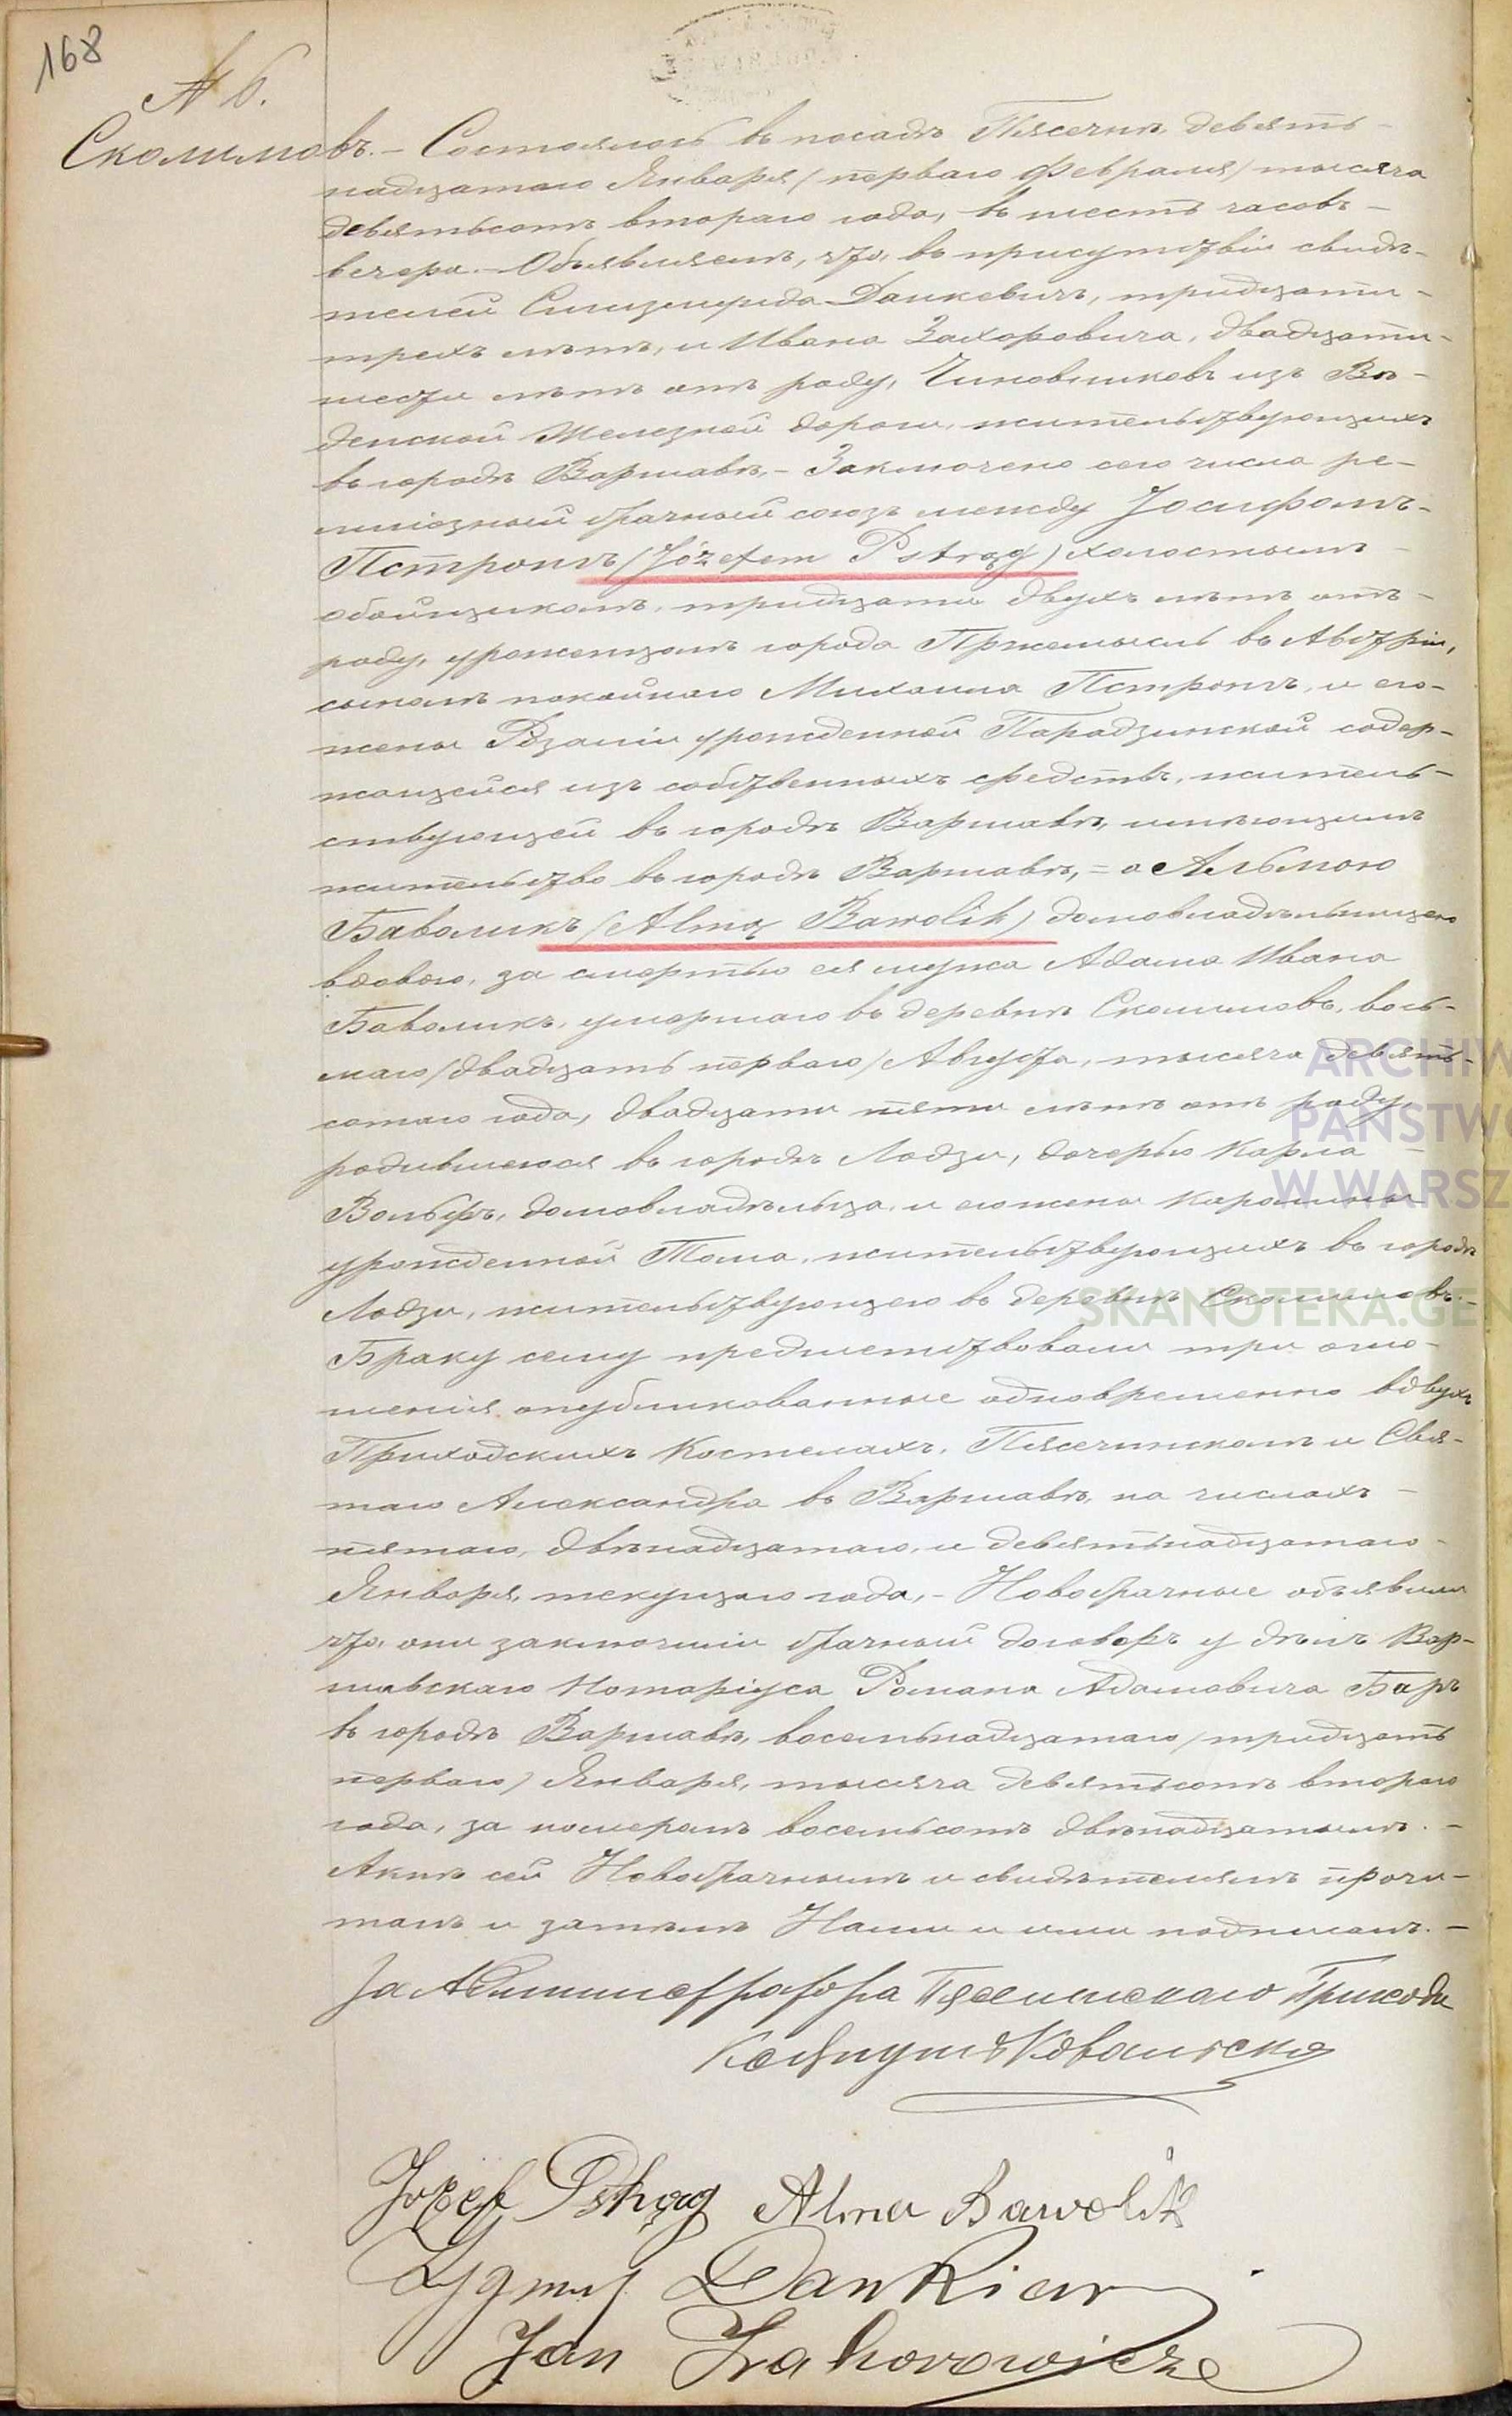 168
№ 6.
Сколимовъ. – Состоялось въ посадѣ Пясечнѣ, девять-
надцатаго Января /перваго Февраля/ тысяча
девятьсотъ втораго года, въ шесть часовъ –
вечера. – Объявляемъ, что, въ присутствіи свидѣ-
телей Сигизмунда Данкевичъ, тридцати-
трехъ лѣтъ, и Ивана Захоровича, двадцати-
шести лѣтъ отъ роду, Чиновниковъ изъ Вѣ-
денской Железной дороги, жительствующихъ
въ городѣ Варшавѣ, – Заключено сего числа ре-
лигіозный брачный союзъ между Іосифомъ-
Пстронгъ /Józefem Pstrąg/ холостымъ –
обойщикомъ, тридцати двухъ лѣтъ отъ –
роду, уроженцомъ города Пржемысль въ Австріи,
сыномъ покойнаго Михаила Пстронгъ, и его-
жены Розаліи урожденной Парадзинской содер-
жащейся изъ собственныхъ средствъ, житель-
ствующей въ городѣ Варшавѣ, имѣющимъ
жительство въ городѣ Варшавѣ, = а Альмою
Баволикъ /Almą Bawolik/ домовладѣльницею
вдовою, за смертью ея мужа Адама Ивана
Баволикъ, умершаго въ деревнѣ Сколимовъ, вось-
маго /двадцать перваго/ Августа, тысяча девять-
сотаго года, двадцати пяти лѣтъ отъ роду,
родившеюся въ городѣ Лодзи, дочерью Карла –
Вольфъ, домовладѣльца, и его жены Каролины
урожденной Тома, жительствующихъ въ городѣ
Лодзи, жительствующею въ деревнѣ Сколимовъ. –
Браку сему предшествовали три огло-
шенія опубликованные одновременно въ двухъ
Приходскихъ Костелахъ, Пясечинскомъ и Свя-
таго Александра въ Варшавѣ, на числахъ –
пятаго, двѣнадцатаго, и девятьнадцатаго –
Января, текущаго года, – Новобрачные объявили
что, они заключили брачный договоръ у дѣлъ Вар-
шавскаго Нотаріуса Романа Адамовича Баръ
въ городѣ Варшавѣ, восемьнадцатаго /тридцать
перваго/ Января, тысяча девятьсотъ втораго
года, за номеромъ восемьсотъ двѣнадцатымъ. –
Актъ сей Новобрачнымъ и свидѣтелямъ прочи-
танъ и затѣмъ Нами и ими подписанъ. –
За Администратора Пясечинскаго Прихода
Кс Янушъ Ковальскій
Józef Pstrąg Alma Bawolik
Zygmu Dankiew
Jan Zachorowicz
ARCHIW
PAŃSTWO
W WARSZ
SKANOTEKA.GEN